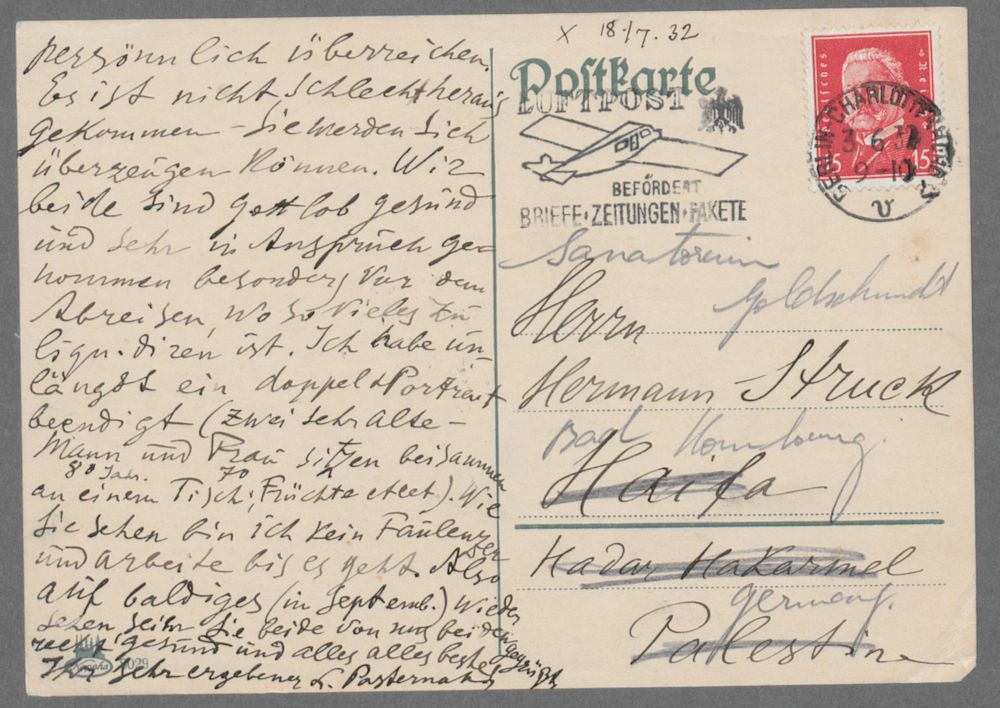 persönnlich überreichen.
Es ist nicht schlecht heraus
gekommen – Sie werden sich
überzeugen können. Wir
beide sind Gottlob gesund
und sehr in Anspruch ge-
nommen besonders vor dem
Abreisen, wo so vieles zu
liqu.diren ist. Ich habe un-
längst ein doppel-Portraet
beendigt (zwei sehr alte –
Mann und Frau sitzen beisammen
80 Jahr. 70
an einem Tisch; Früchte etc et). Wie
Sie sehen bin ich kein Faulenzer
und arbeite bis es geht. Also
auf baldiges (in Septemb.) Wieder
sehen seihr Sie beide von uns beiden gegrüßt
recht gesund und alles alles beste
Ihr sehr ergebener L. Pasternak
9029
x 18/7. 32
Postkarte
LUFTPOST
BEFÖRDERT
BRIEFE·ZEITUNGEN·PAKETE
Deutsches Reich
15 15
BERLIN-CHARLOTTENBURG
3.6.32
9-10
v
Sanatorium
Goldschmidt
Herrn
Hermann Struck
Bad Homburg.
Haifa
Hadar HaKarmel
Germany.
Palestine